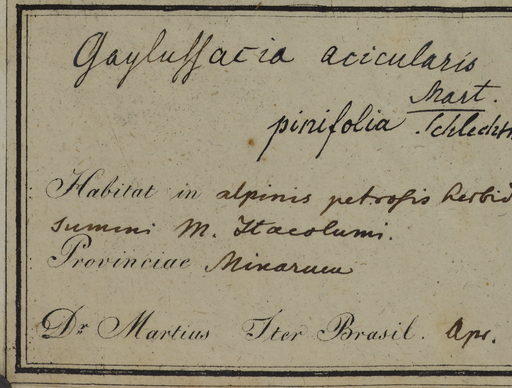 Gayluſsacia acicularis
Mart.
pinifolia Schlecht
Habitat in alpinis petroſis herbid
summi M. Itacolumi.
Provinciae Minarum
Dr Martius Iter Brasil. Apr.